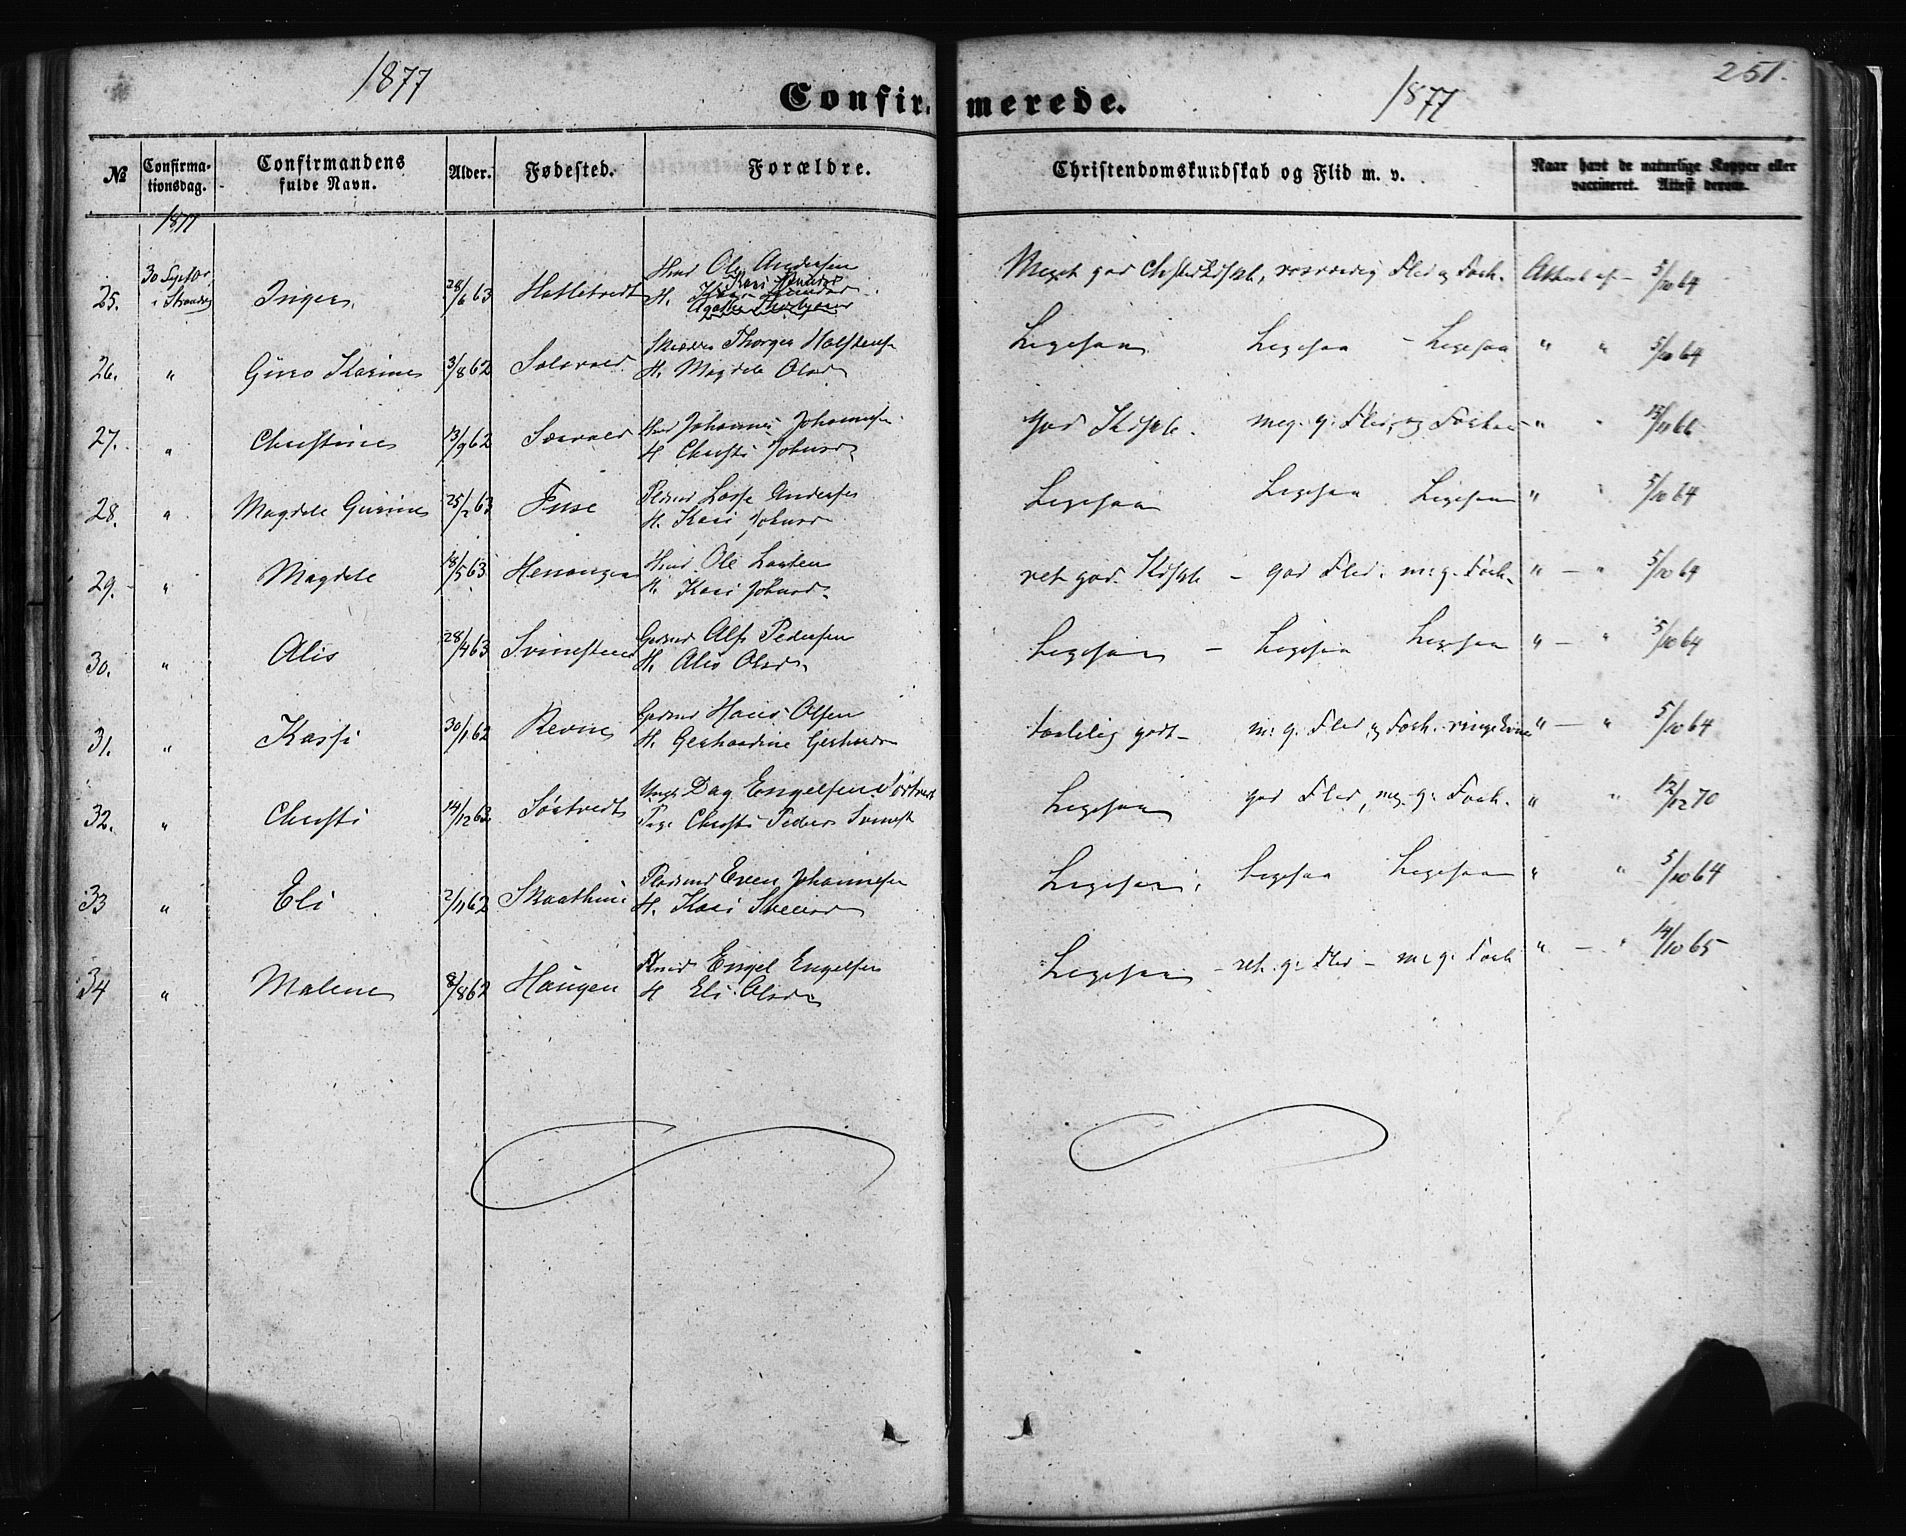 1877
Confirmerede.
1877
251.
№
Confirmationsdag.
Confirmandens fulde Navn.
Alder.
Fødested.
Forældre.
Christendomskundskab og Flid m. v.
Naar havt de naturlige Kopper eller vaccineret. Attest derom.
1877
25. 30 Septbr i Strandvig Inger 28/6 63 Hatletvedt Hmd Ole Andersen
H. Kari
Meget god
Flid og Forh. Attest af 5/10 64
26. " Guro Karine 3/8 62 Solvold Thorger Halstensen
H. Magdele Olsd
Ligesaa Ligesaa - Ligesaa " " 5/10 64
27. " Christine 13/9 62 Hmd Johannes Johannesen
H Christi Johnsd
God Kdskb. meg. g. Flid, og Forhold " " 15/11 66
28. " Magdele Gurine 25/2 63 Fuse Pladsmd Lasse Andersen
H. Kari Johnsd
Ligesaa Ligesaa Ligesaa " " 5/10 64
29. " Magdele 18/5 63 Henangen Hmd Ole Larsen
H. Kari Johnsd.
ret god Kdskb - god Flid. m. g. Forh. " - " 5/10 64
30. " Alis 28/4 63 Svinesteen Gdmd Alf Pedersen
H. Alis Olsd
Ligesaa - Ligesaa Ligesaa " - " 5/10 64
31. " Kassi 30/1 62 Revne Gdmd Hans Olsen
H. Gerhardine Gerhardsd
taalelig godt m: g. Flid og Forh. " - " 5/10 64
32. " Christi 14/12 62 Søstvedt Ungk Dag Engelsen Søstvedt
Pige Christi Pedersd Svinest
Ligesaa god Flid, meg. g. Forh. " " 12/12 70
33 " Eli 2/11 62 Skaathun Pladsmd Even Johannesen
H. Kari Steensd
Ligesaa. Ligesaa Ligesaa " " 5/10 64
34 " Malene 8/8 62 Haugen Engel Engelsen
H Eli Olsd
Ligesaa - ret. g. Flid - m: g. Forh " - " 14/10 65